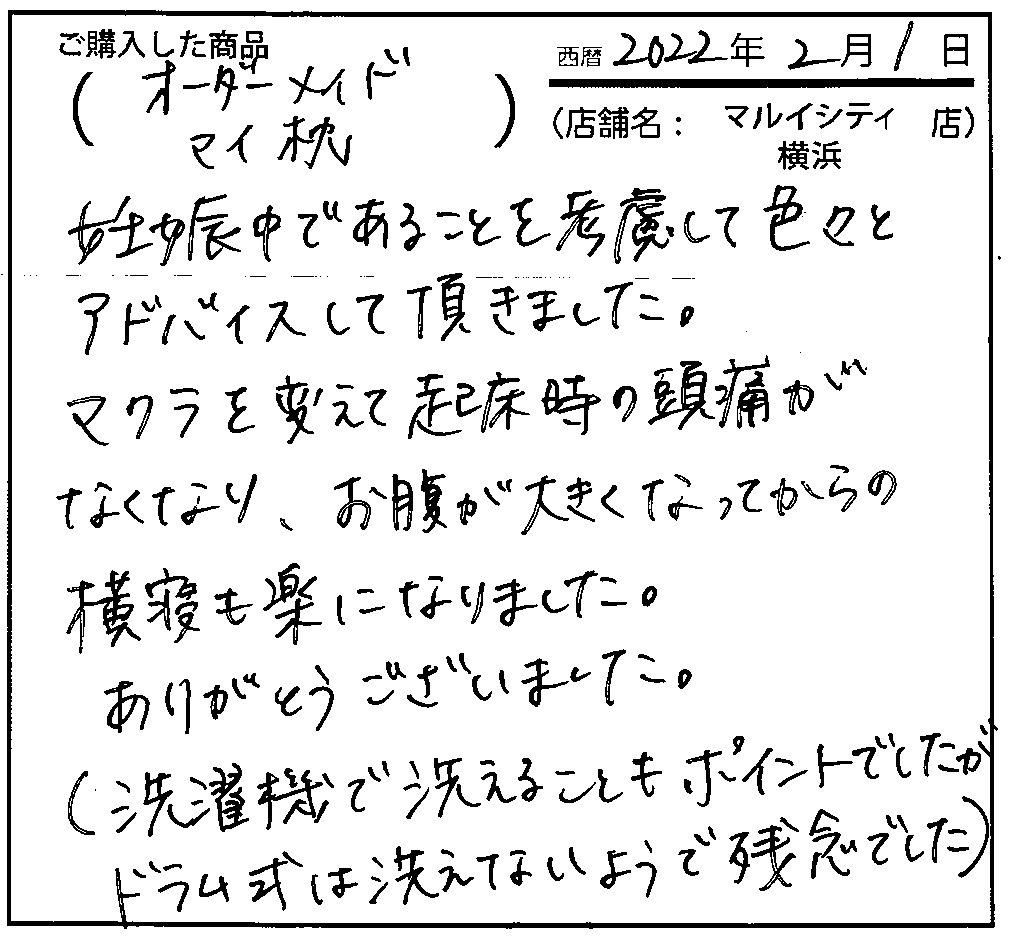 ご購入した商品
西暦 2022年 2月 1日
(オーダーメイド
マイ枕)
(店舗名: マルイシティ 店)
横浜
妊娠中であることを考慮して色々と
アドバイスして頂きました。
マクラを変えて起床時の頭痛が
なくなり、お腹が大きくなってからの
横寝も楽になりました。
ありがとうございました。
(洗濯機で洗えることもポイントでしたが
ドラム式は洗えてないようで残念でした)